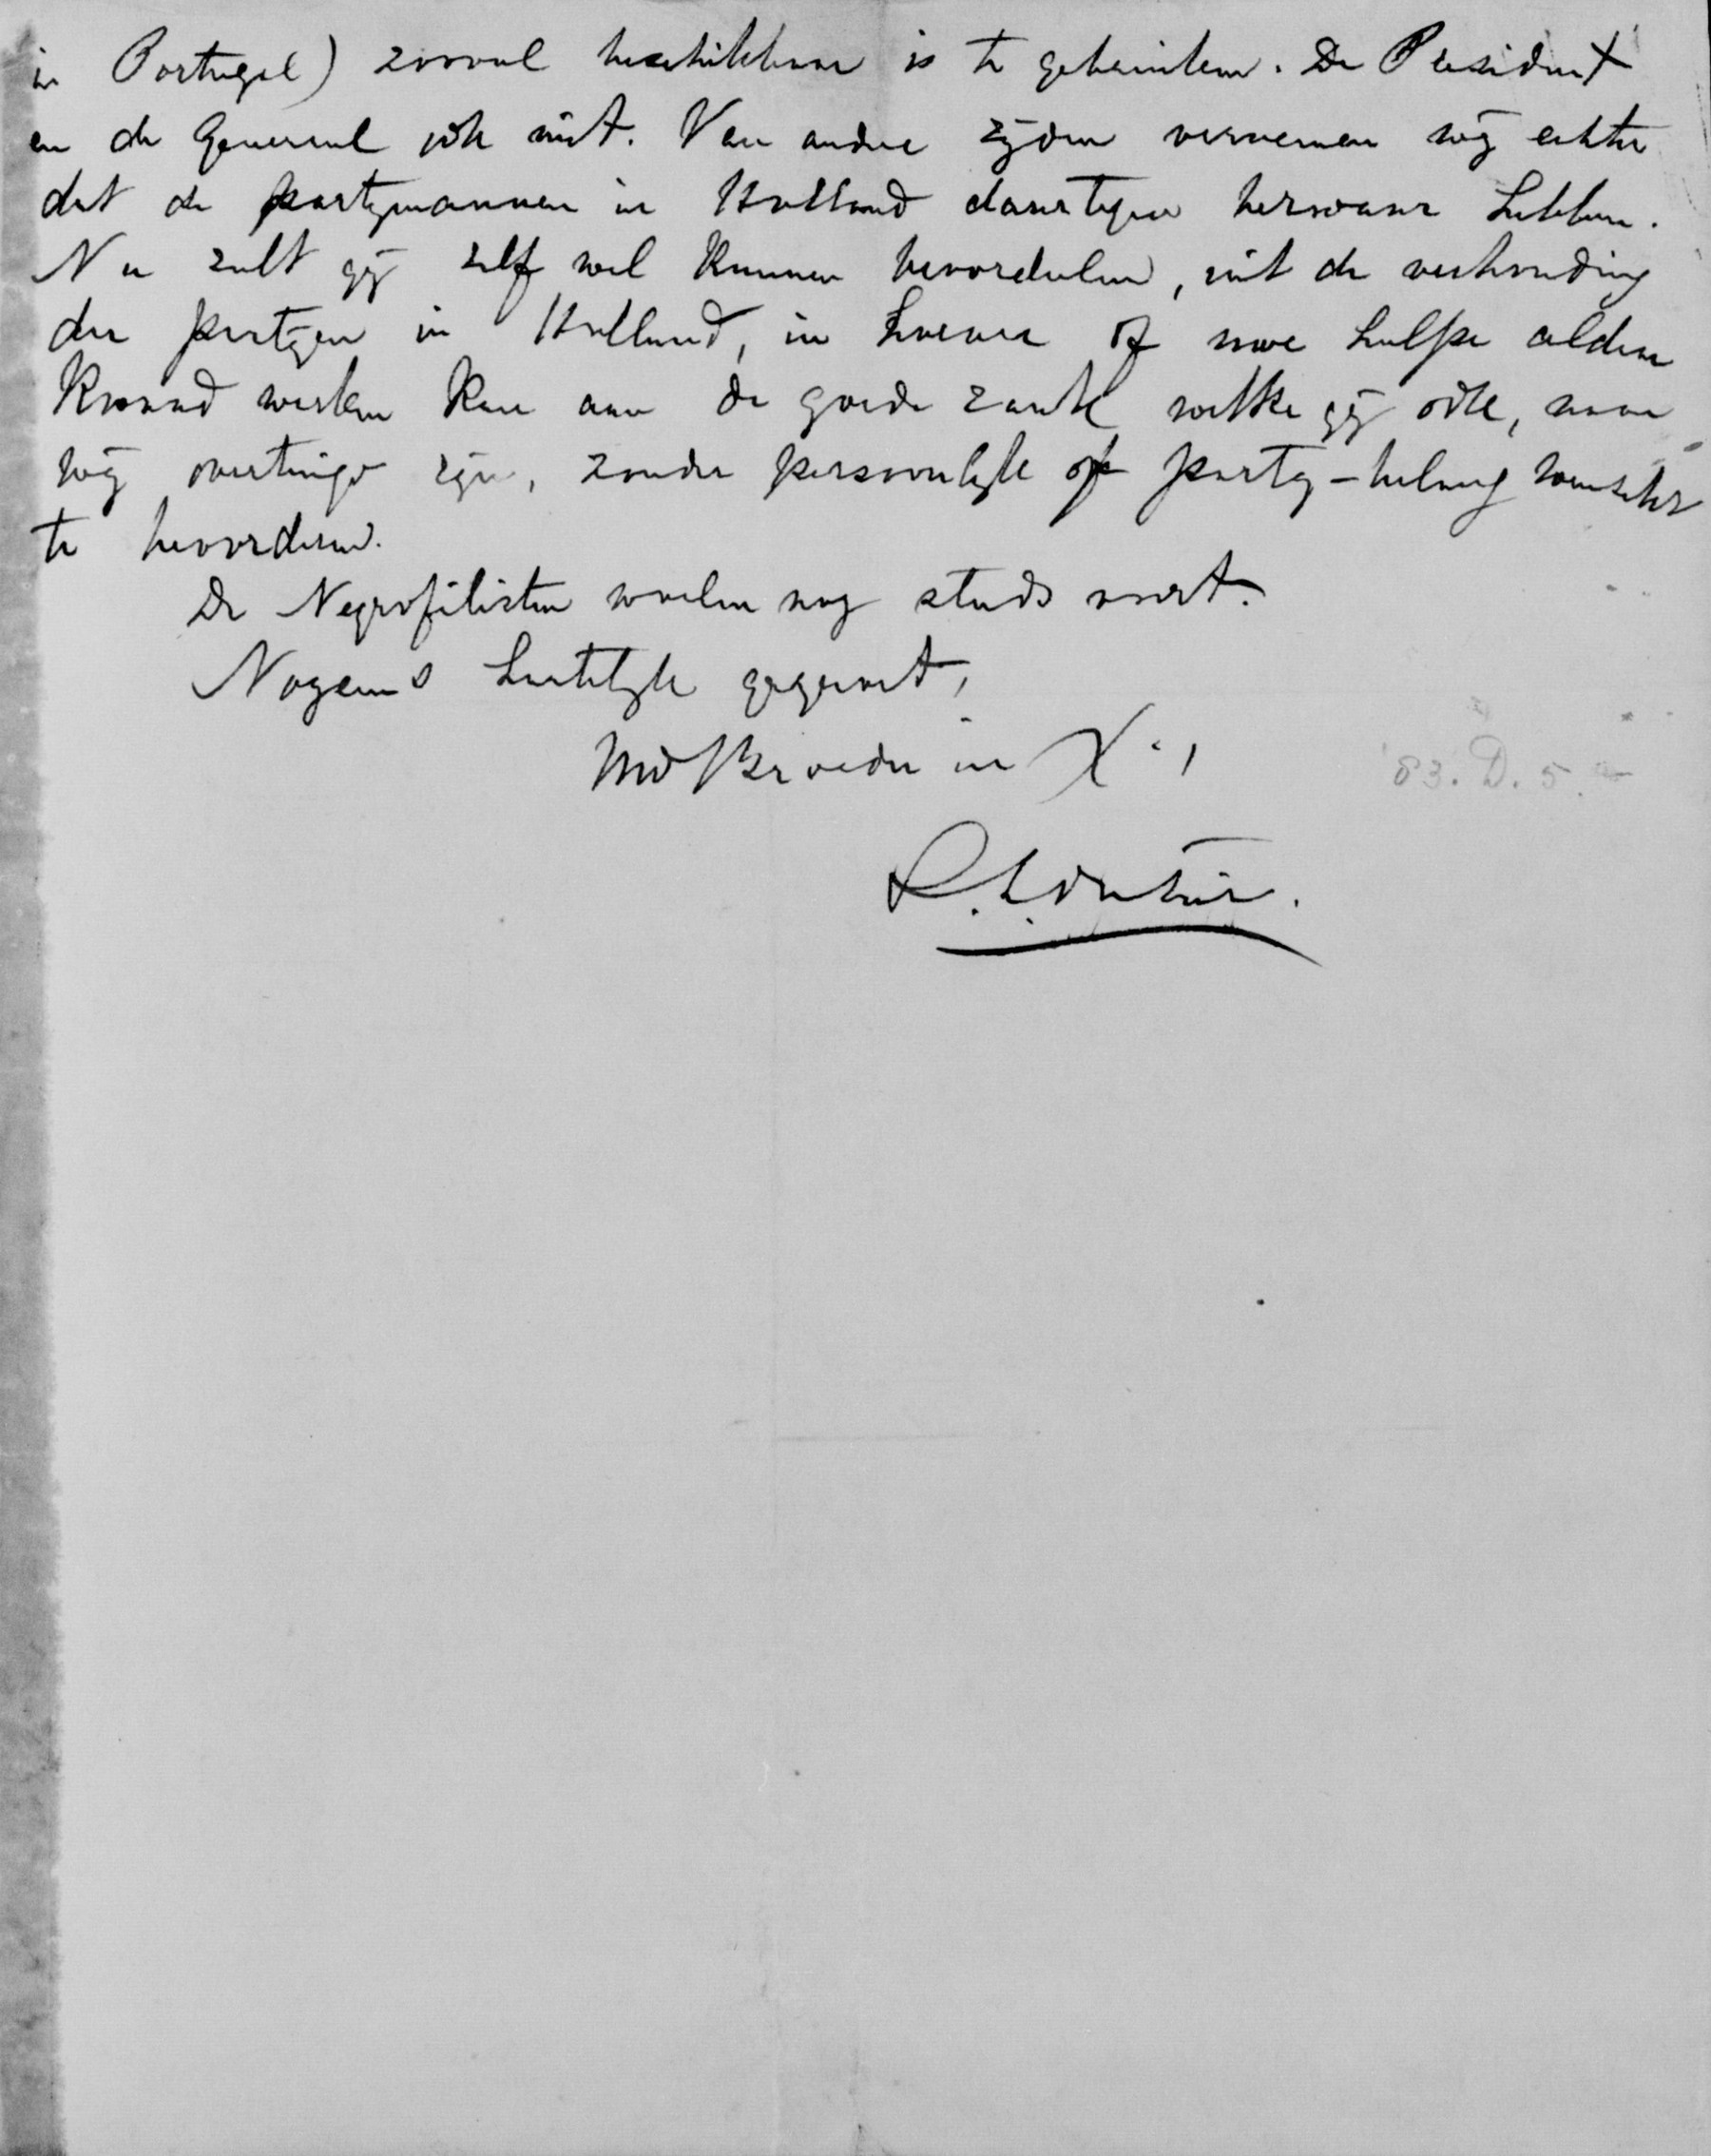 in Portugal) zooveel beschikbaar is te gebruiken. De President
en de Generaal ook niet. Van andere zyden vernemen wy echter
dat de partymannen in Holland daartegen bezwaar hebben.
Nu zult gy zelf wel kunnen beoordeelen, uit de verhouding
der partyen in Holland, in hoever of uwe hulpe aldaar
kwaad werken kan aan de goede zaak welke gy ook, naar
wy overtuigd zyn, zonder persoonlyk of party-belang wenscht
te bevorderen.
De Negrofilisten woelen nog steeds voort.
Nogeens hartelyk gegroet,
Uw Broeder in X.,
83. D. 5.